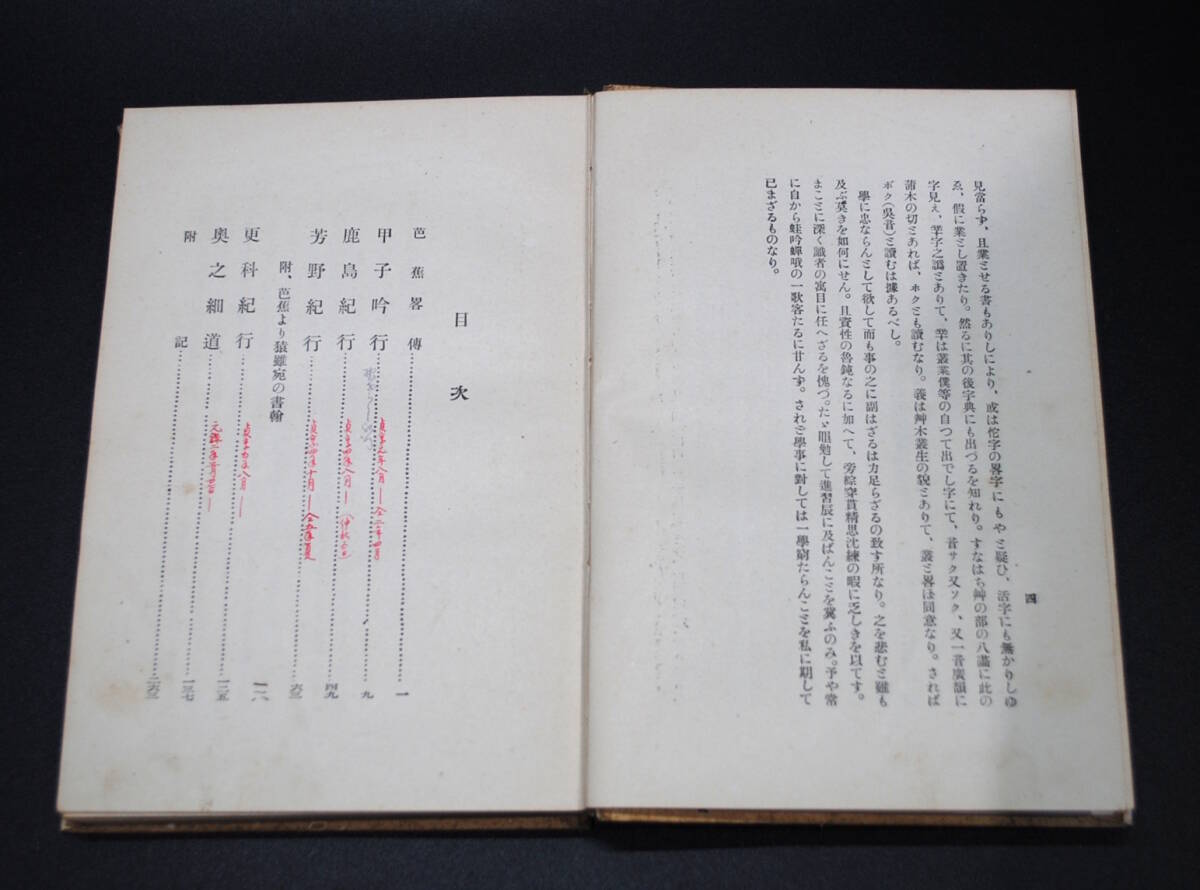 四
見當らず、且業とせる書もありしにより、或は佗字の畧字にもやと疑ひ、活字にも無かりしゆ
ゑ、假に業とし置きたり。然るに其の後字典にも出づるを知れり。すなはち艸の部の八畫に此の
字見え、丵字之譌とありて、丵は叢業僕等の自つて出でし字にて、音サク又ソク、又一音廣韻に
蒲木の切とあれば、ホクとも讀むなり。義は艸木叢生の貌とありて、叢と畧ぼ同意なり。されば
ボク(吳音)と讀むは據あるべし。
學に忠ならんとして欲して而も事の之に副はざるは力足らざるの致す所なり。之を悲むと雖も
及ぶ莫きを如何にせん。且資性の魯鈍なるに加へて、旁綜穿貫精思沈練の暇に乏しきを以てす。
まことに深く識者の寓目に任へざるを愧づ。たゞ黽勉して進習辰に及ばんことを冀ふのみ。予や常
に自から蛙吟蟬哦の一歌客たるに甘んず。されど學事に對しては一學窮たらんことを私に期して
已まざるものなり。
目次
芭蕉畧傳 一
甲子吟行 貞享元年八月―仝二年四月 九
鹿島紀行 貞享四年八月―(仲秋 四九
芳野紀行 貞享四年十月―仝五年夏 六三
附、芭蕉より猿雖宛の書翰
更科紀行 貞享五年八月― 一一八
奧之細道 元祿二年 一二五
附記 一三七
二六三